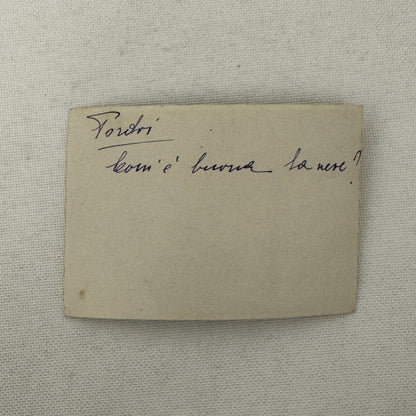 Pordoi
Com'è buona la neve?